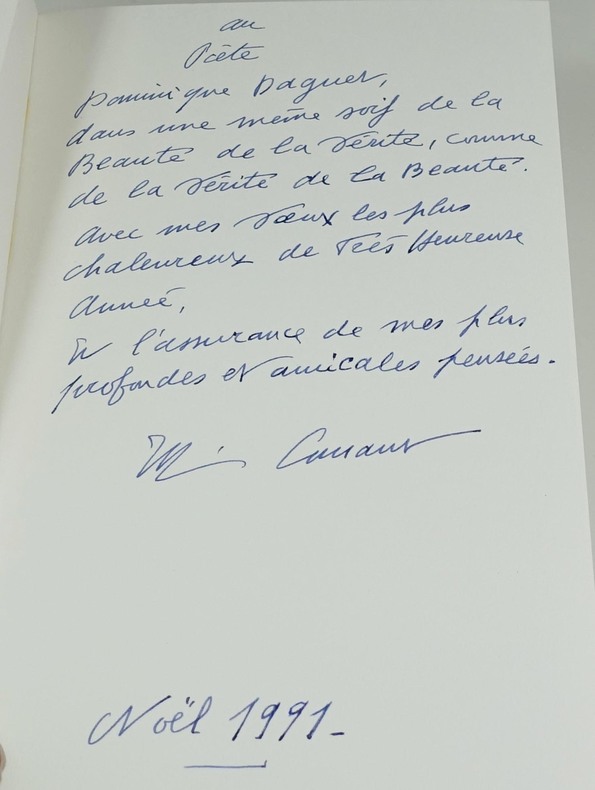 au
Poète
Dominique Daguet,
dans une même soif de la
Beauté de la Vérité, comme
de la Vérité de la Beauté.
avec mes Vœux les plus
chaleureux de Très Heureuse
Année,
Et l'assurance de mes plus
profondes et amicales pensées.
Noël 1991.